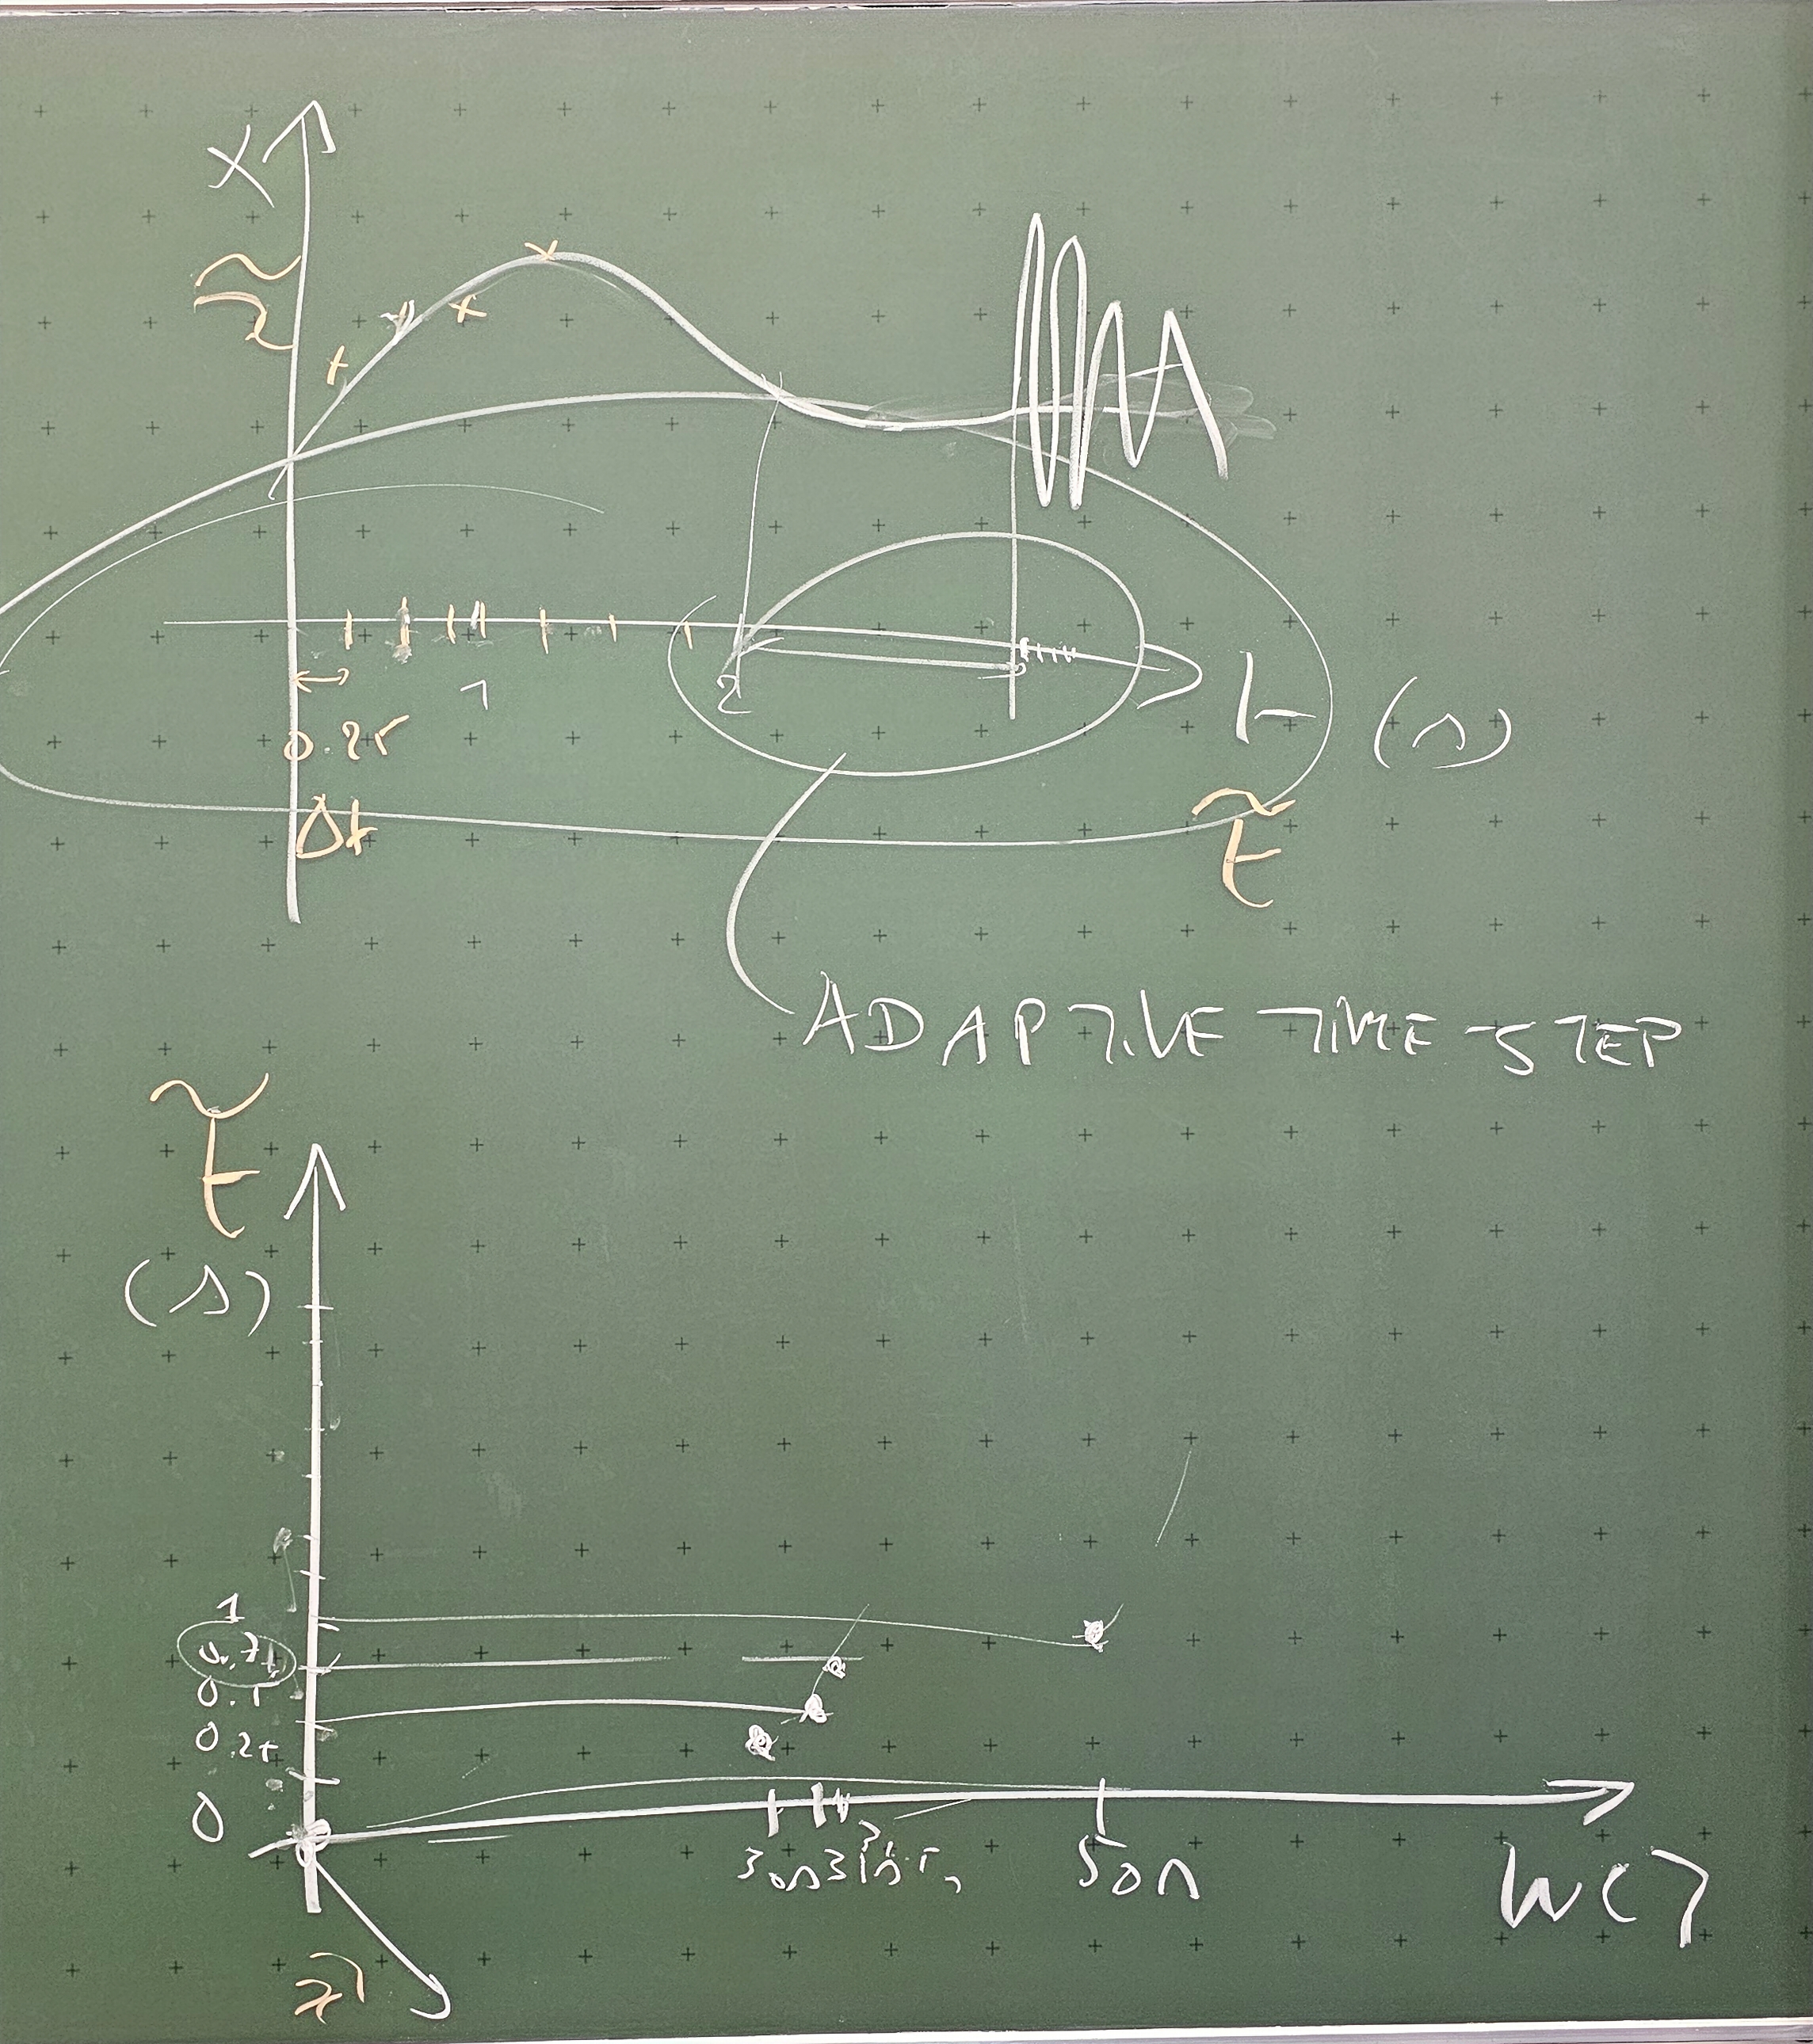 X
x̃
1
2
t (s)
0.25
Δt
t̃
ADAPTIVE TIME STEP
t̃
(s)
1
0.75
0.5
0.25
0
30s 31s
50s
WCT